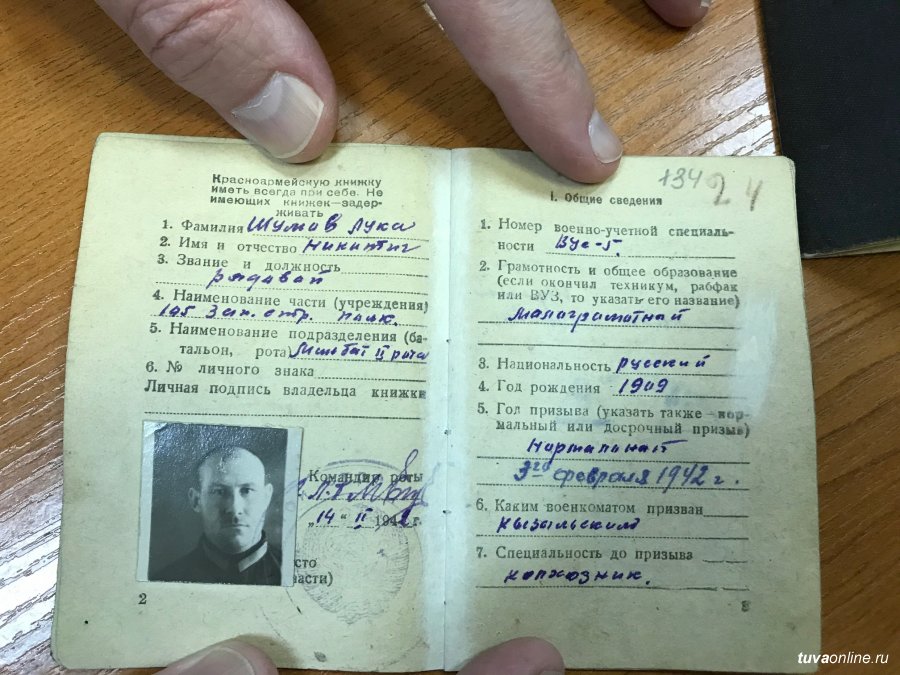 Красноармейскую книжку
иметь всегда при себе. Не
имеющих книжек—задер-
живать
1. Фамилия Шумов Лука
2. Имя и отчество Никитич
3. Звание и должность
рядавай
4. Наименование части (учреждения)
Зап. стр. полк.
5. Наименование подразделения (ба-
тальон, рота) Минбат II рота
6. № личного знака
Личная подпись владельца книжки
Командир роты
„14“ II 1942 г.
2
134 24
I. Общие сведения
1. Номер военно-учетной специаль-
ности Вус-5
2. Грамотность и общее образование
(если окончил техникум, рабфак
или ВУЗ, то указать его название)
Малограмотный
3. Национальность русский
4. Год рождения 1909
5. Год призыва (указать также нор-
мальный или досрочный призыв)
Нормальнай
3го февраля 1942 г.
6. Каким военкоматом призван
Кызыльским
7. Специальность до призыва
колхозник.
3
tuvaonline.ru